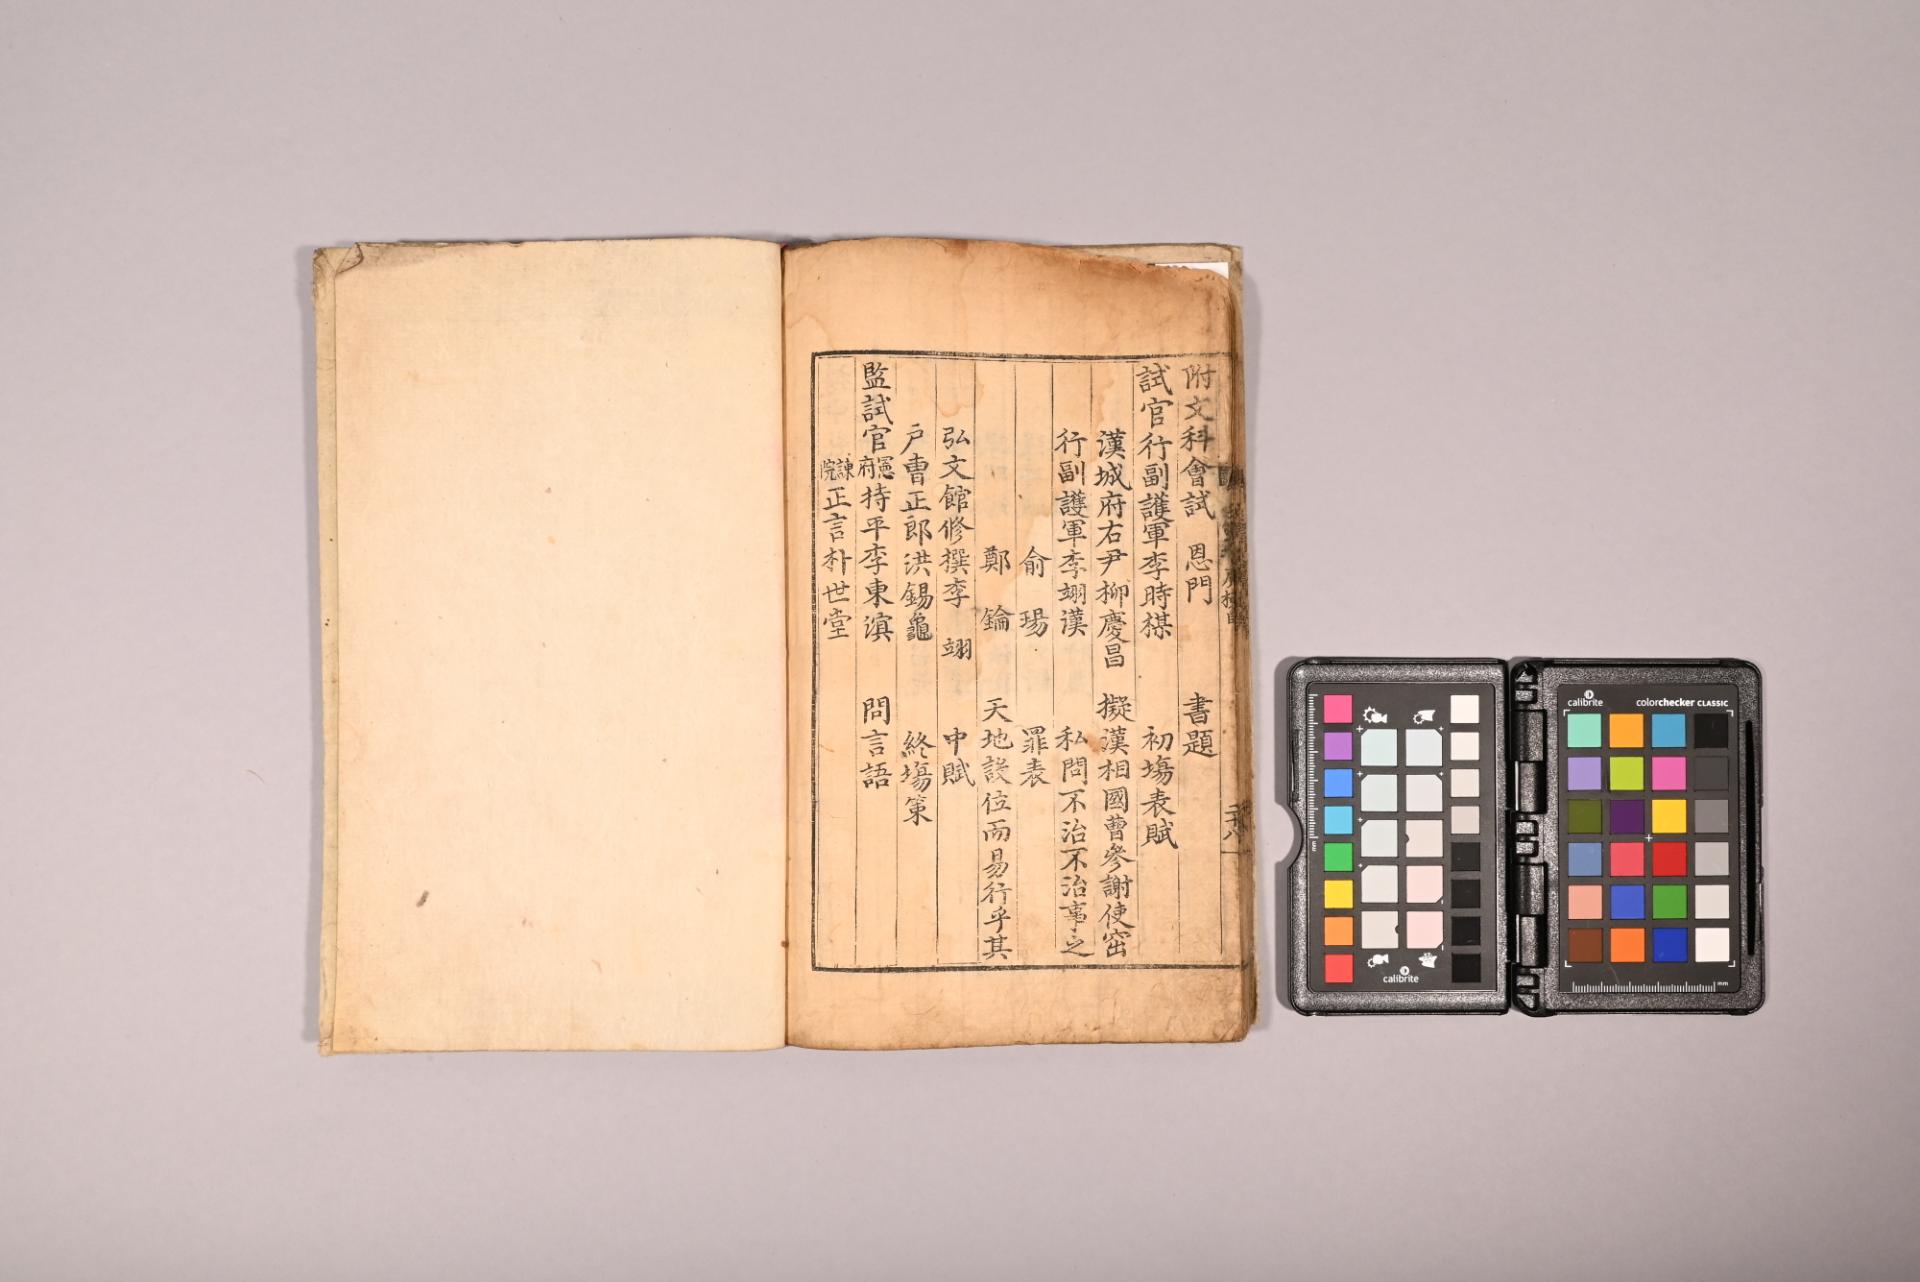 附文科會試 恩門 書題
試官行副護軍李時楳 初場表賦
漢城府右尹柳慶昌 擬漢相國曹參謝使窋
行副護軍李翊漢 私問不治不治事之
俞瑒 罪表
鄭鑰 天地設位而易行乎其
弘文館修撰李翊 中賦
戶曹正郎洪錫龜 終場策
監試官憲府持平李東溟 問言語
諫院正言朴世堂
calibrite
calibrite
colorchecker CLASSIC
mm
mm